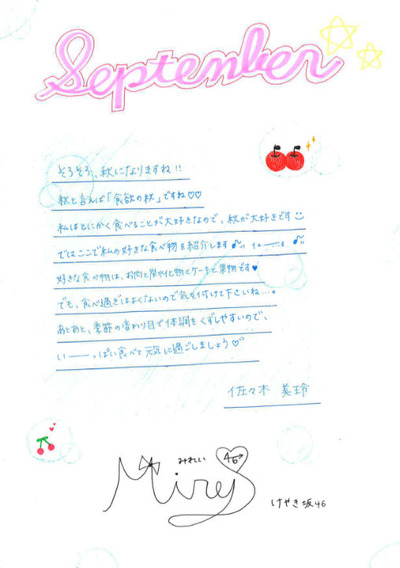 September
そろそろ、秋になりますね!!
秋と言えば「食欲の秋」ですね♡♡
私はとにかく食べることが大好きなので、秋が大好きです
ではここで私の好きな食べ物を紹介します♪
好きな食べ物は、お肉と
ケーキと果物です♥
でも、食べ過ぎはよくないので気を付けて下さいね...。
あとあと、季節の変わり目で体調をくずしやすいので、
い――っぱい食べて元気に過ごしましょう♡
佐々木 美玲
みれい
46
Mirei
けやき坂46